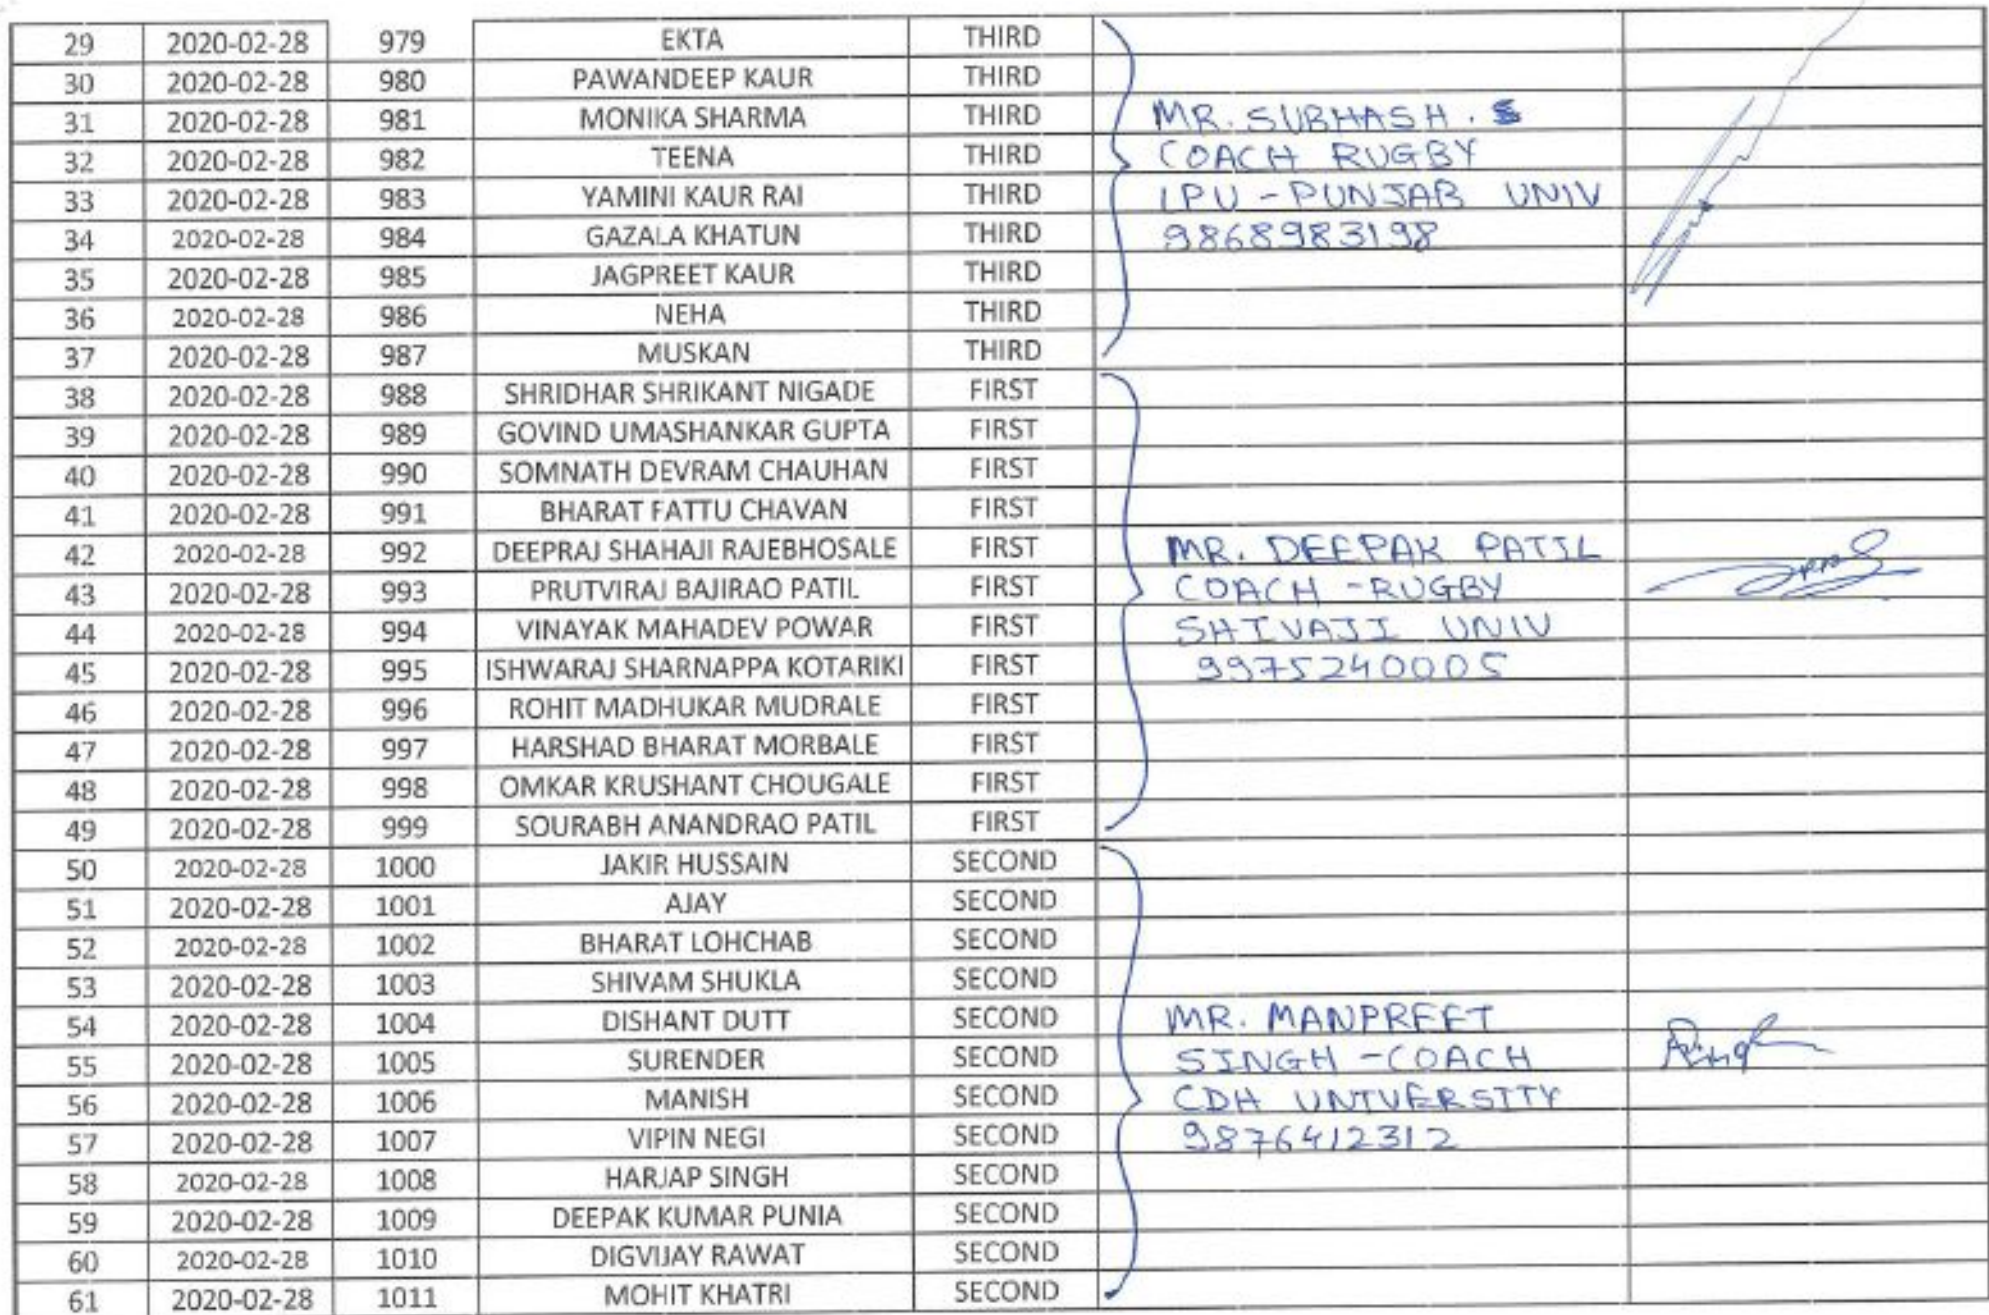 29 2020-02-28 979 EKTA THIRD
30 2020-02-28 980 PAWANDEEP KAUR THIRD
31 2020-02-28 981 MONIKA SHARMA THIRD MR. SUBHASH . S
32 2020-02-28 982 TEENA THIRD COACH RUGBY
33 2020-02-28 983 YAMINI KAUR RAI THIRD LPU - PUNJAB UNIV
34 2020-02-28 984 GAZALA KHATUN THIRD 9868983198
35 2020-02-28 985 JAGPREET KAUR THIRD
36 2020-02-28 986 NEHA THIRD
37 2020-02-28 987 MUSKAN THIRD
38 2020-02-28 988 SHRIDHAR SHRIKANT NIGADE FIRST
39 2020-02-28 989 GOVIND UMASHANKAR GUPTA FIRST
40 2020-02-28 990 SOMNATH DEVRAM CHAUHAN FIRST
41 2020-02-28 991 BHARAT FATTU CHAVAN FIRST
42 2020-02-28 992 DEEPRAJ SHAHAJI RAJEBHOSALE FIRST MR. DEEPAK PATIL
43 2020-02-28 993 PRUTVIRAJ BAJIRAO PATIL FIRST COACH - RUGBY
44 2020-02-28 994 VINAYAK MAHADEV POWAR FIRST SHIVAJI UNIV
45 2020-02-28 995 ISHWARAJ SHARNAPPA KOTARIKI FIRST 9975240005
46 2020-02-28 996 ROHIT MADHUKAR MUDRALE FIRST
47 2020-02-28 997 HARSHAD BHARAT MORBALE FIRST
48 2020-02-28 998 OMKAR KRUSHANT CHOUGALE FIRST
49 2020-02-28 999 SOURABH ANANDRAO PATIL FIRST
50 2020-02-28 1000 JAKIR HUSSAIN SECOND
51 2020-02-28 1001 AJAY SECOND
52 2020-02-28 1002 BHARAT LOHCHAB SECOND
53 2020-02-28 1003 SHIVAM SHUKLA SECOND
54 2020-02-28 1004 DISHANT DUTT SECOND MR. MANPREET
55 2020-02-28 1005 SURENDER SECOND SINGH - COACH
56 2020-02-28 1006 MANISH SECOND CDH UNIVERSITY
57 2020-02-28 1007 VIPIN NEGI SECOND 9876412312
58 2020-02-28 1008 HARJAP SINGH SECOND
59 2020-02-28 1009 DEEPAK KUMAR PUNIA SECOND
60 2020-02-28 1010 DIGVIJAY RAWAT SECOND
61 2020-02-28 1011 MOHIT KHATRI SECOND